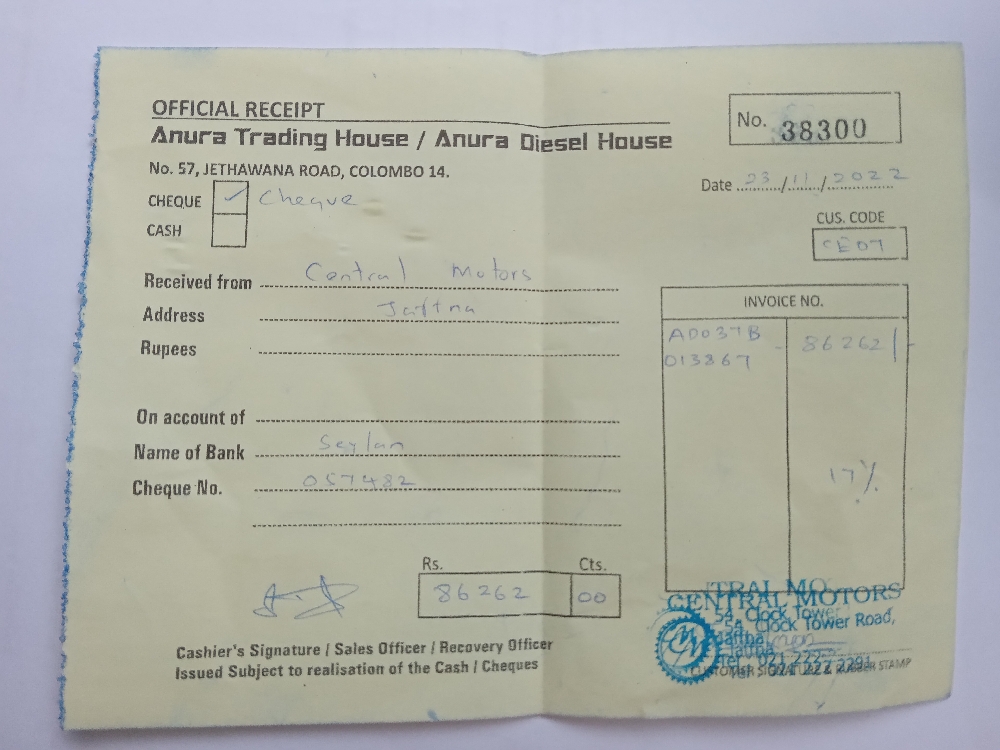 OFFICIAL RECEIPT
Anura Trading House / Anura Diesel House
No. 57, JETHAWANA ROAD, COLOMBO 14.
No. 38300
Date 23/11/2022
CHEQUE ✓ Cheque
CASH
CUS. CODE
CE07
Received from Central Motors
Address Jaffna
Rupees
On account of
Name of Bank Seylan
Cheque No. 057482
INVOICE NO.
AD037B
013867 - 86262/-
17%
Rs. Cts.
86262 00
Cashier's Signature / Sales Officer / Recovery Officer
Issued Subject to realisation of the Cash / Cheques
CENTRAL MOTORS
54, Clock Tower Road,
Jaffna
Tel: 021 222 2291
CUSTOMER SIGNATURE & RUBBER STAMP